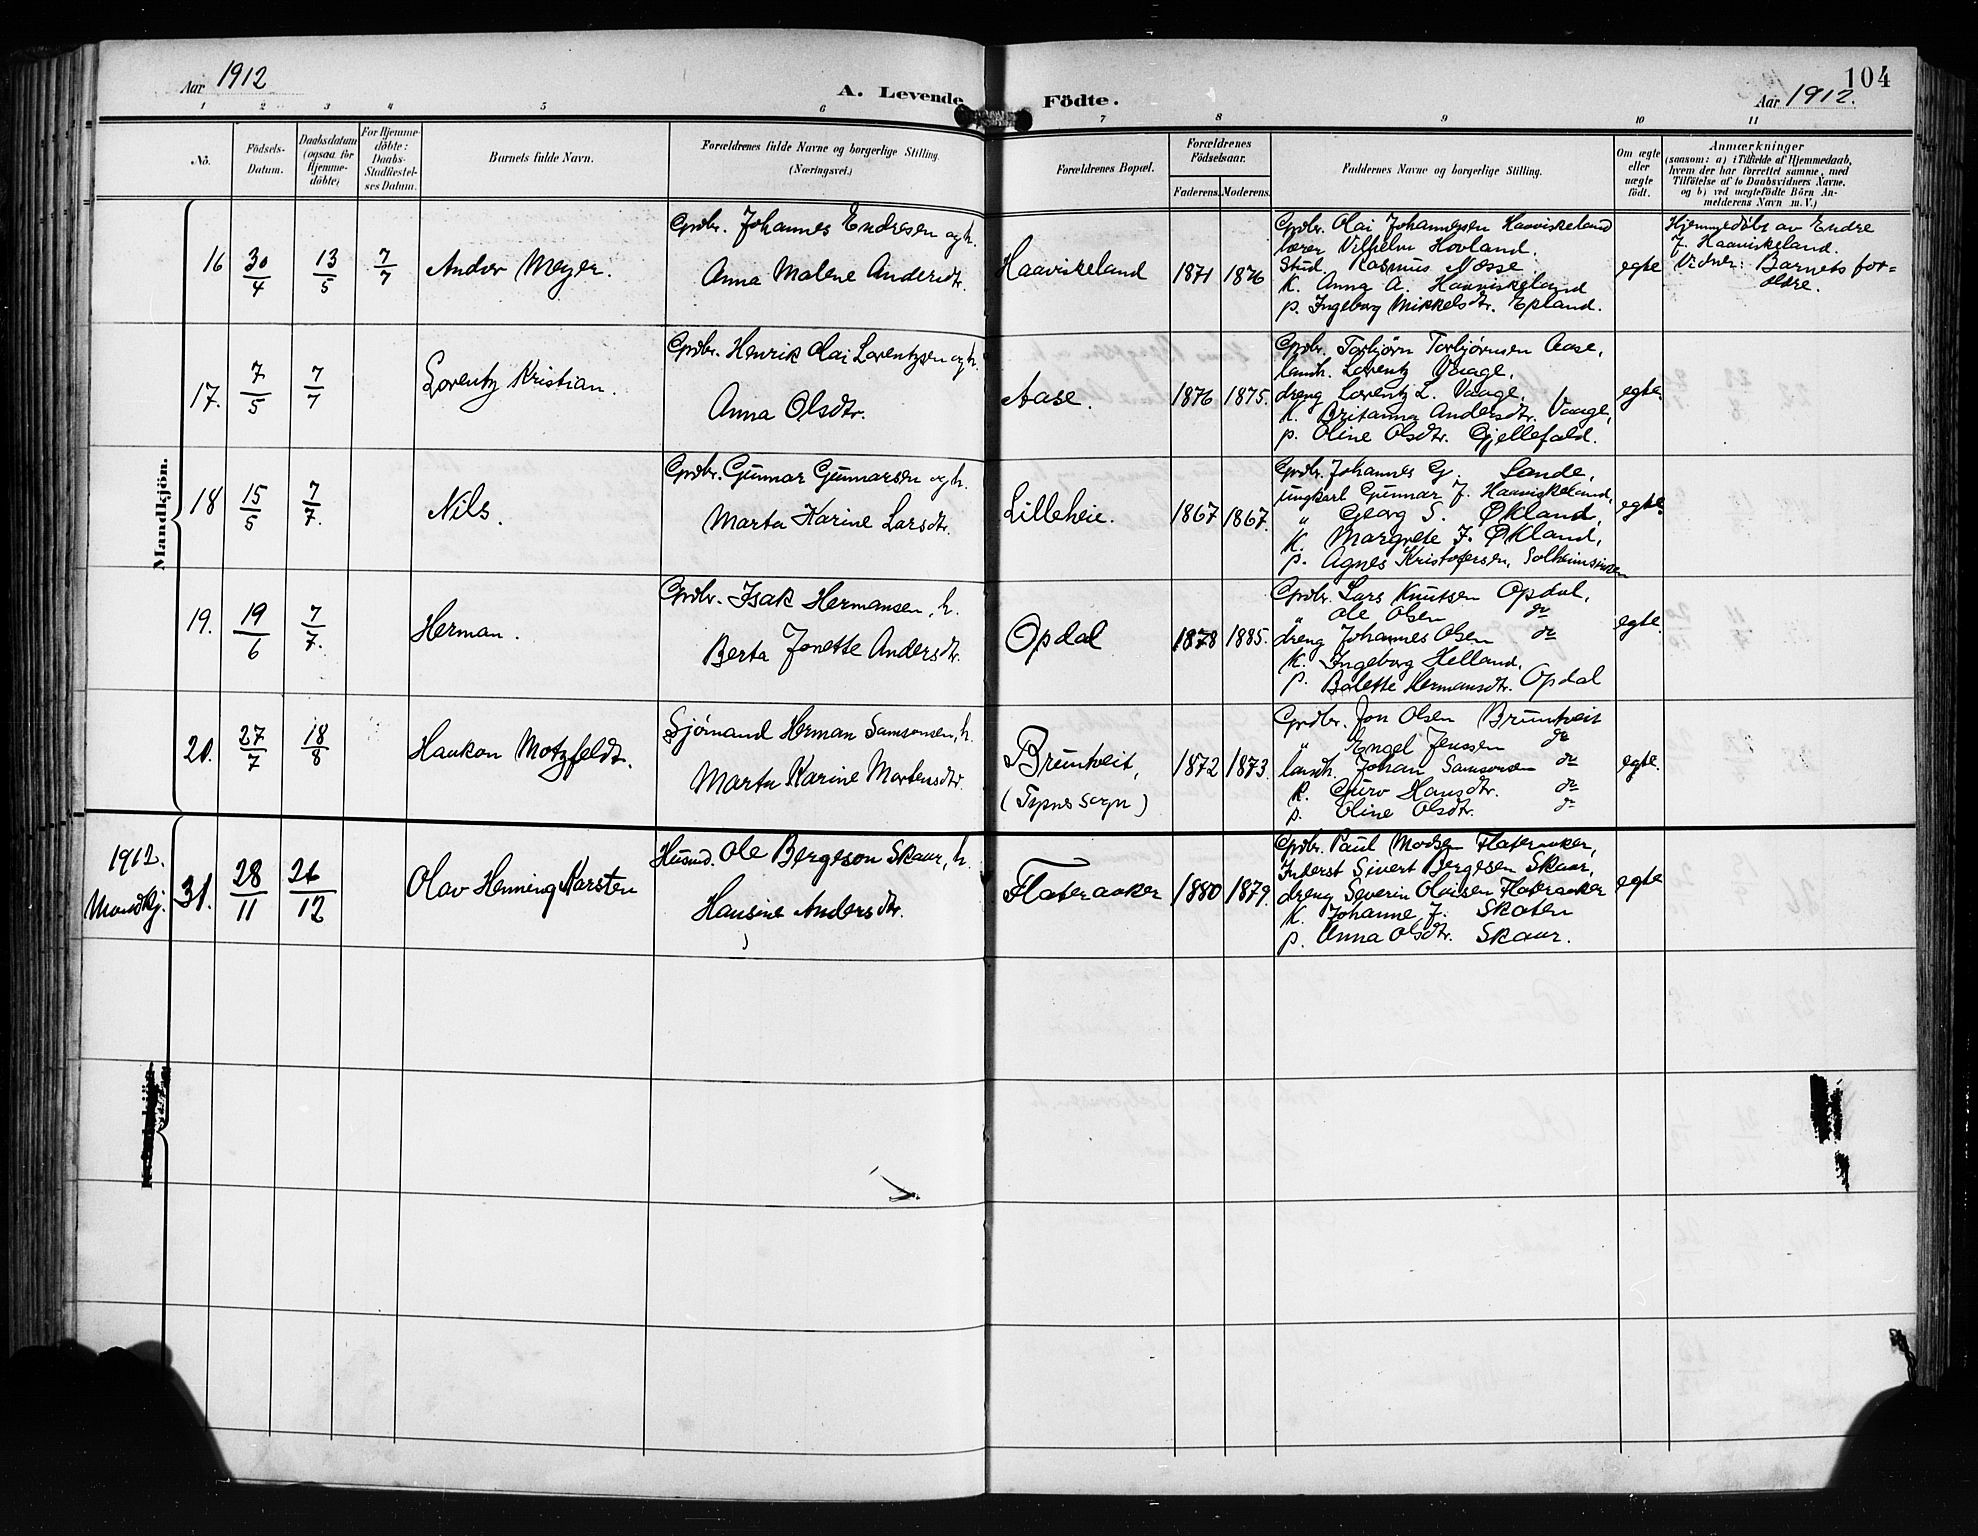 Aar 1912
A. Levende Födte.
Aar 1912.
104
1 2 3 4 5 6 7 8 9 10 11
Nô.
Födsels-Datum.
Daabsdatum (ogsaa for Hjemme-döbte)
For Hjemme-döbte: Daabs-Stadfæstel-ses Datum.
Barnets fulde Navn.
Forældrenes fulde Navne og borgerlige Stilling. (Næringsvei.)
Forældrenes Bopæl.
Forældrenes Födselsaar.
Faderens. Moderens.
Faddernes Navne og borgerlige Stilling.
Om ægte eller uægte födt.
Anmærkninger
(saasom: a) i Tilfælde af Hjemmedaab,
hvem der har forrettet samme, med
Tilföielse af to Daabsvidners Navne,
og b) ved uægtefödte Börn An-
melderens Navn m. V.)
Mandkjön.
16 30/4 13/5 7/7 Andor Meyer.
Grdbr. Johannes Endresen og h.
Anna Malene Andersdtr.
Haaviskeland 1871 1876
Grdbr. Olai Johannesen Haaviskeland
lærer Vilhelm Hovland.
Stud. Rasmus Næsse
K. Anna A. Haaviskeland
p. Ingeborg Mikkelsdtr. Epland.
egte
Hjemmedöbt av Endre
J. Haaviskeland.
Vidner: Barnets for-
ældre.
17. 7/5 7/7 Lorentz Kristian.
Grdbr. Henrik Olai Lorentzsen og h.
Anna Olsdtr.
Aase. 1876 1875.
Grdbr. Torbjörn Torbjörnsen Aase,
landh. Lorentz Vaage,
dreng Lorentz L. Vaage,
K. Britanna Andersdtr. Vaage,
p. Oline Olsdtr. Gjellefald.
egte
18 15/5 7/7. Nils.
Grdbr. Gunnar Gunnarsen og h.
Marta Karine Larsdtr.
Lilleheie. 1867 1867.
Grdbr. Johannes G. Sande,
ungkarl Gunnar J. Haaviskeland,
" Georg S. Økland,
K. Margrete J. Økland,
p. Agnes Kristofersen, Solheimsviken
egte
19. 19/6 7/7. Herman.
Grdbr. Isak Hermansen, h.
Berta Jonette Andersdtr.
Opdal 1878 1885.
Grdbr. Lars Knutsen Opdal,
" Ole Olsen do
dreng Johannes Olsen do
K. Ingeborg Helland,
p. Bolette Hermansdtr. Opdal
egte.
20. 27/7 18/8 Haakon Motzfeldt.
Sjömand Herman Samsonsen, h.
Marta Karine Mortensdtr.
Bruntveit,
(Tysnes sogn)
1872 1873.
Grdbr. Jon Olsen Bruntveit
" Engel Jenssen do
landh. Johan Samsonsen do
K. Guro Hansdtr. do
p. Oline Olsdtr. do
egte.
1912.
Mandkj.
31. 28/11 26/12 Olav Henning Karsten
Husmd. Ole Bergeson Skaar, h.
Hansine Andersdtr.
Flateraaker 1880 1879.
Grdbr. Paul Madsen Flateraaker,
Inderst Sivert Bergesen Skaar,
dreng Severin Olaisen Flateraaker
K. Johanne J. Skaten
p. Anna Olsdtr. Skaar.
egte